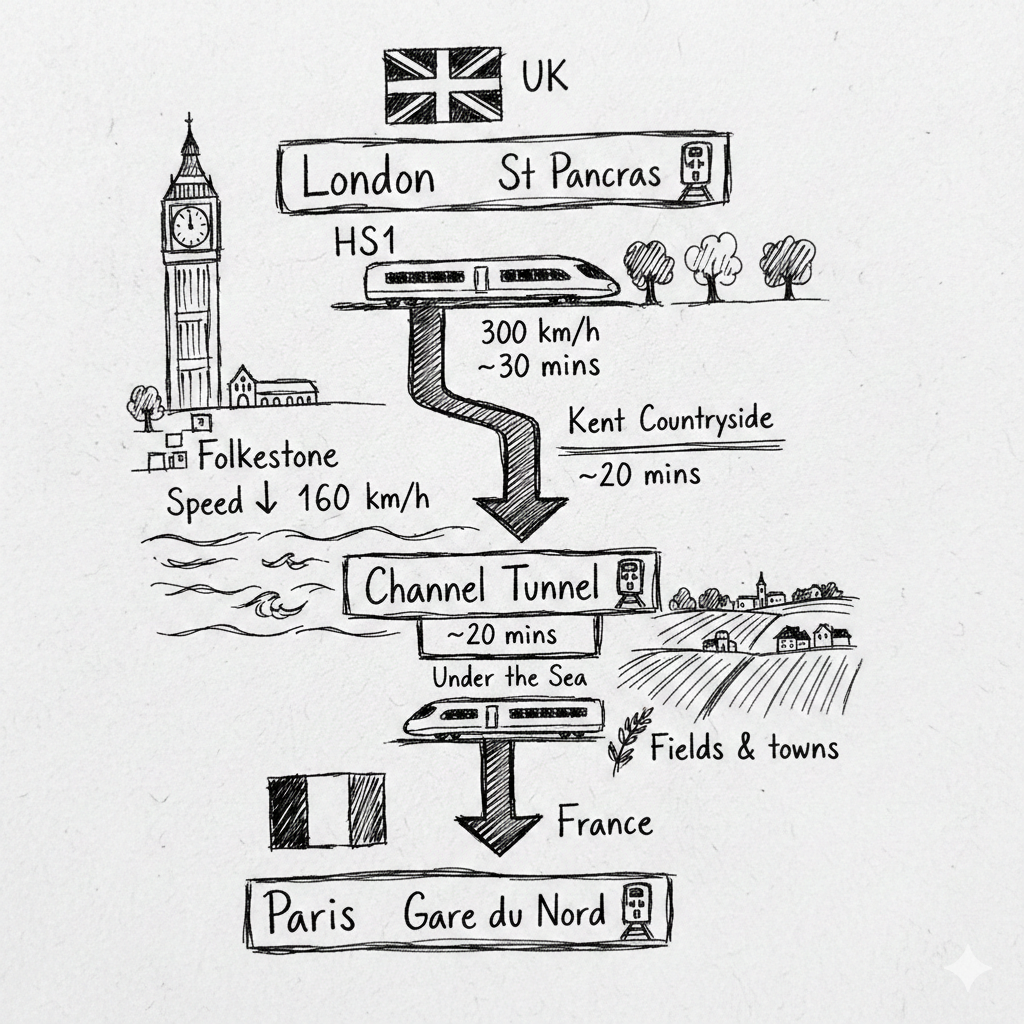 UK
London St Pancras
HS1
300 km/h
~30 mins
Kent Countryside
~20 mins
Folkestone
Speed ↓ 160 km/h
Channel Tunnel
~20 mins
Under the Sea
Fields & towns
France
Paris Gare du Nord